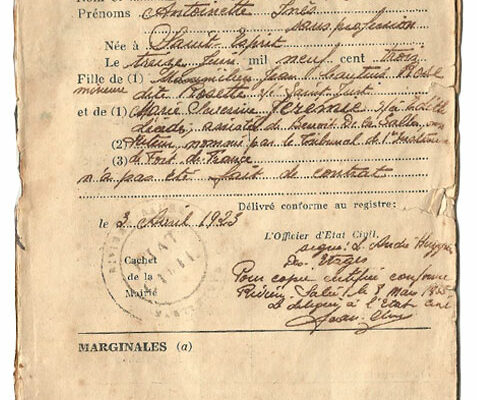 Prénoms Antoinette Inès
sans profession
Née à Saint Esprit
Le treize Juin mil neuf cent trois
Fille de (1) Maximilien Jean
mineure dit Rosette Saint Just
et de (1) Marie Séverine Jérémie
décédée, assistée de Benoit De la Salle, son
(2) tuteur nommé par le Tribunal de 1e Instance
(3) de Fort-de-France
n'a pas été fait de contrat
Délivré conforme au registre:
le 3 Avril 1923
L'Officier d'Etat Civil,
signé: L. André
des Etages
Cachet
de la
Mairie
ETAT
Pour copie certifiée conforme
Rivière Salée, le 8 Mars
Le délégué à l'Etat civil
MARGINALES (a)